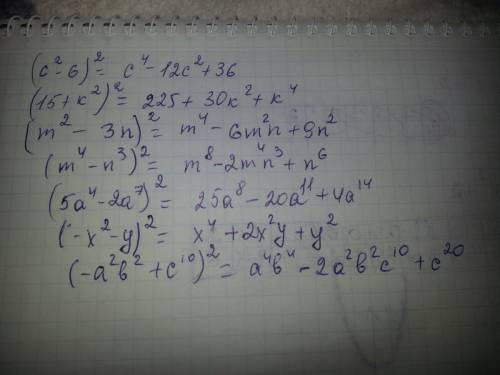 (c²-6)² = c⁴-12c²+36
(15+к²)² = 225+30к²+к⁴
(m² - 3n)² = m⁴ - 6m²n + 9n²
(m⁴-n³)² = m⁸-2m⁴n³+n⁶
(5a⁴-2a⁷)² = 25a⁸-20a¹¹+4a¹⁴
(-x²-y)² = x⁴+2x²y+y²
(-a²в²+c¹⁰)² = a⁴в⁴-2a²в²c¹⁰+c²⁰